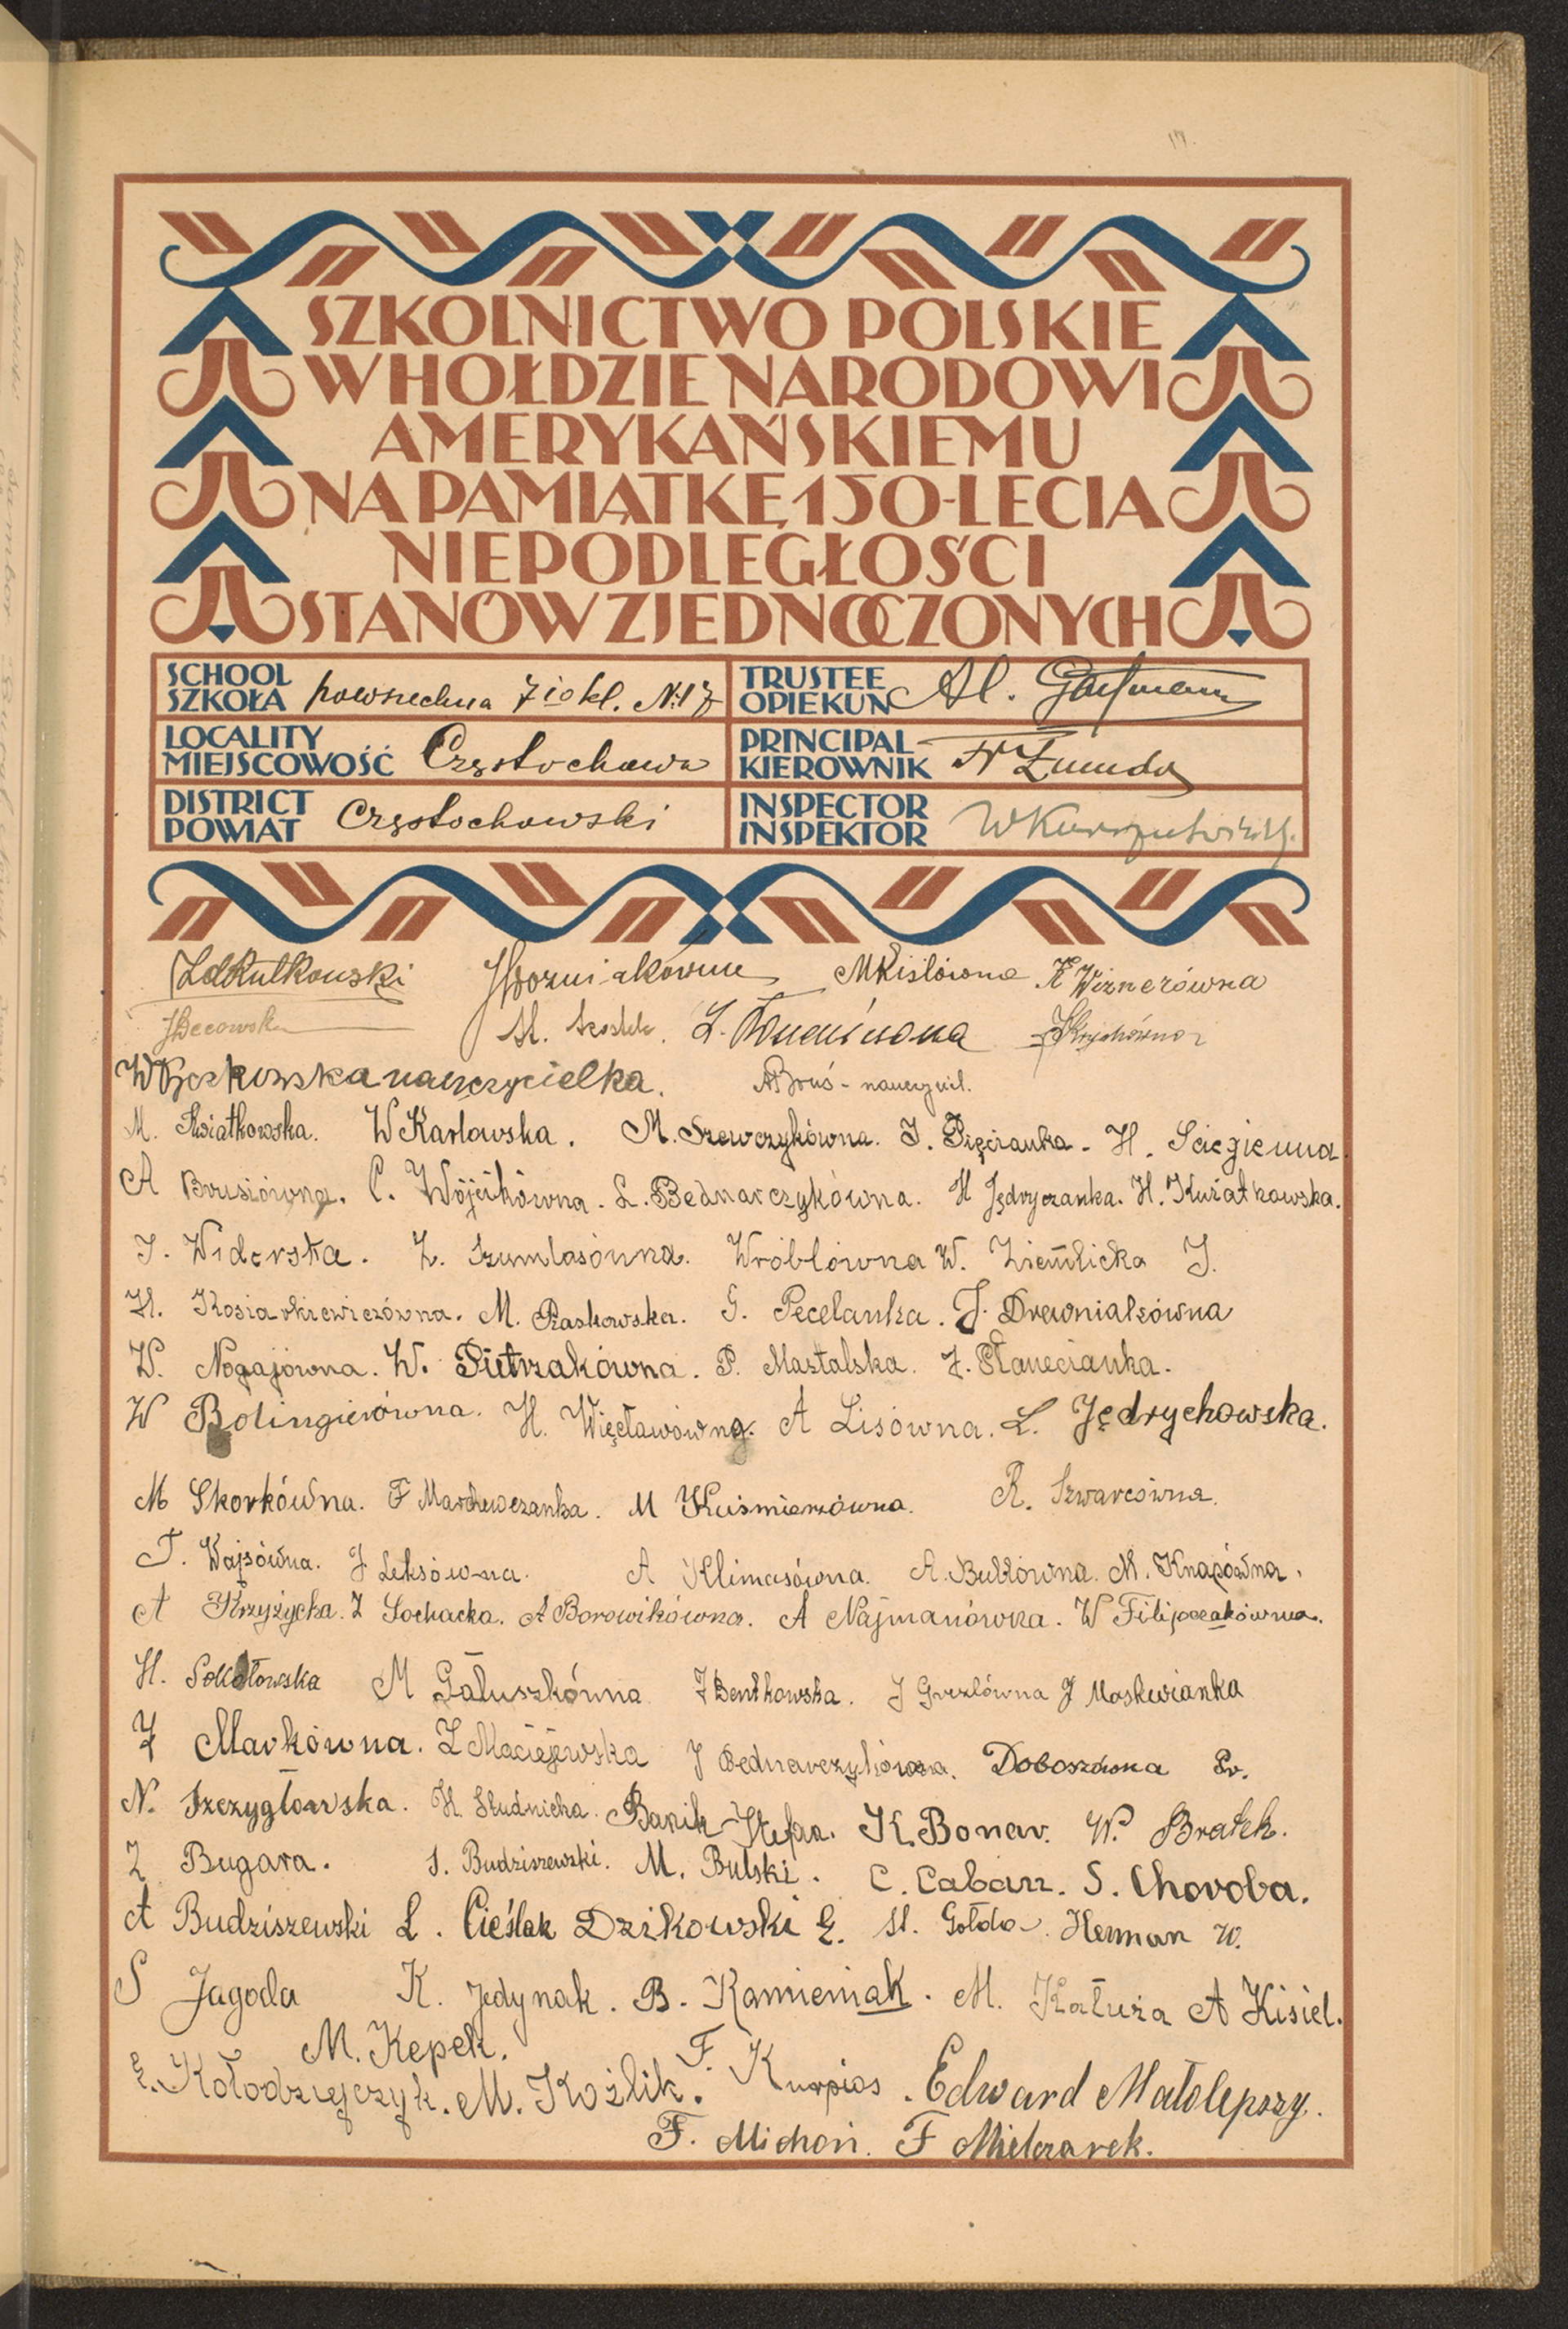 SZKOLNICTWO POLSKIE
W HOŁDZIE NARODOWI
AMERYKAŃSKIEMU
NA PAMIĄTKĘ 150-LECIA
NIEPODLEGŁOŚCI
STANÓW ZJEDNOCZONYCH
SCHOOL
SZKOŁA powszechna 7io kl. № 17
TRUSTEE
OPIEKUN Al.
LOCALITY
MIEJSCOWOŚĆ Częstochowa
PRINCIPAL
KIEROWNIK Żmuda
DISTRICT
POWIAT Częstochowski
INSPECTOR
INSPEKTOR
ZdRutkowski JWozniakówna MKiślówna K Wiznerówna
St. L.
nauczycielka. ABruś - nauczyciel.
M. Kwiatkowska. W Karlowska. M. Szewczykówna. J. Pięcianka. H. Sciegienna
A Brusiówna. C. Wójcikówna. L. Bednarczykówna. H Jędryczanka. H. Kwiatkowska.
I. Widerska. Z. Szumlasówna. Wróblówna W. Ziemlicka J.
H. Kosiarkiewiczówna. M. Raskowska. G. Pecelanka. J. Drewniakówna
W. Nogajówna. W. Pietrzakówna. P. Masłalska. J. Staneczanka.
W Bolingierówna. H. Więcławówna. A Lisówna. L. Jędrychowska.
M Skorkówna. F Marchewczanka. M Kuśmierzówna. R. Szwarcówna.
T. Wajsówna. J Leksówna. A Klimasówna. A. Bulkówna. M. Knapówna.
A Krzyżycka. Z Sochacka. A Borowikówna. A Najmanówna. W Filipczakówna.
H. Sokołowska M Gałuszkówna J Bentkowska. J Gryzlówna J Moskwianka
Z Markówna. L Maciejewska J Bednarczykówna. Doboszówna Br.
N. Szczygłowska. H. Słudnicka. Banik Stefan. K. Bonar. W. Bratek.
Z Bugara. S. Budziszewski. M. Bulski. C. Caban. S. Choroba.
A Budziszewski L. Cieślak Dzikowski E. St. Gołda. Herman W.
S Jagoda K. Jedynak. B. Kamieniak. M. Kałuża A Kisiel.
M. Kepek.
E. Kołodziejczyk. M. Koźlik. F. Kurpios. Edward Małolepszy.
F. Michoń. F Mielczarek.